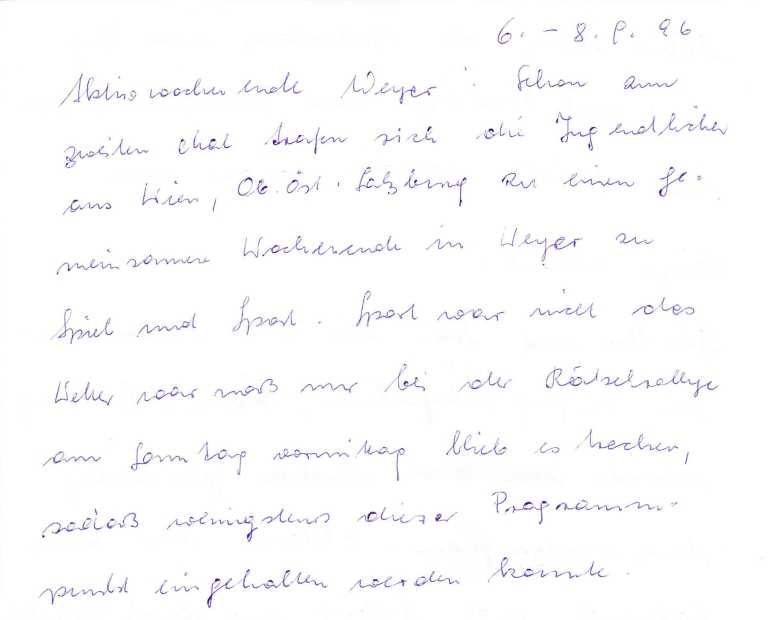 6. – 8. 9. 96
Aktivwochenende Weyer: Schon zum
zweiten Mal trafen sich die Jugendlichen
aus Wien, Ob. Öst. Salzburg zu einen ge-
meinsamen Wochenende in Weyer zu
Spiel und Sport. Sport war nicht das
Wetter war naß nur bei der Rätselrallye
am Sonntag vormittag blieb es trocken,
sodaß wenigstens dieser Programm-
punkt eingehalten werden konnte.